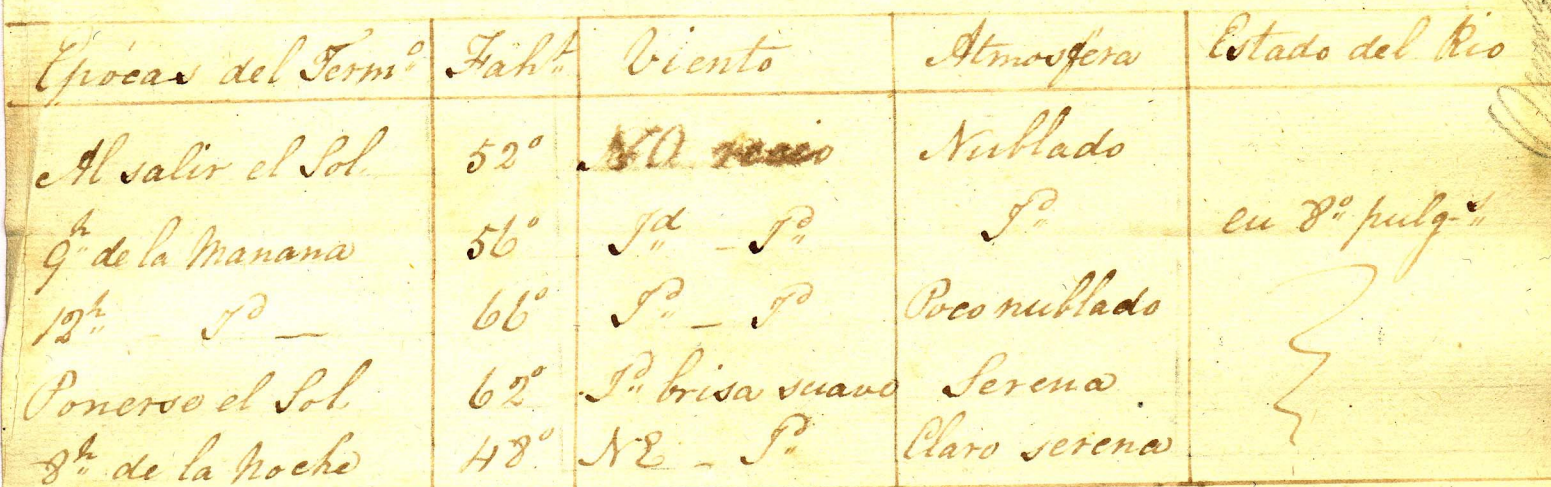 Epócas del Termº Fahᵗ Viento Atmosfera Estado del Rio
Al salir el Sol 52º NO recio Nublado
9ʰ de la Manana 56º Yᵈ - Yᵈ Yᵈ en 8º pulgˢ
12ʰ - Yᵈ - 66º Yᵈ - Yᵈ Poco nublado
Ponerse el Sol 62º Yᵈ brisa suave Serena
8ʰ de la Noche 48º NE - Yᵈ Claro serena